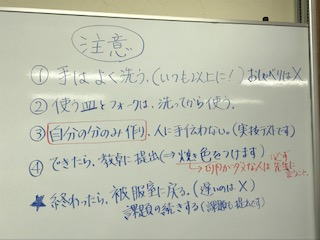 注意
① 手はよく洗う。(いつも以上に!) おしゃべりは×
② 使う皿とフォークは、洗ってから使う。
③ 自分の分のみ作り、人に手伝わない。(実技テストです)
④ できたら、教卓に提出(⇒焼き色をつけます)
必ず
→卵がダメな人は先生に言うこと。
★ 終わったら、被服室に戻る。(遅いのは×)
課題の続きする(課題も提出です)